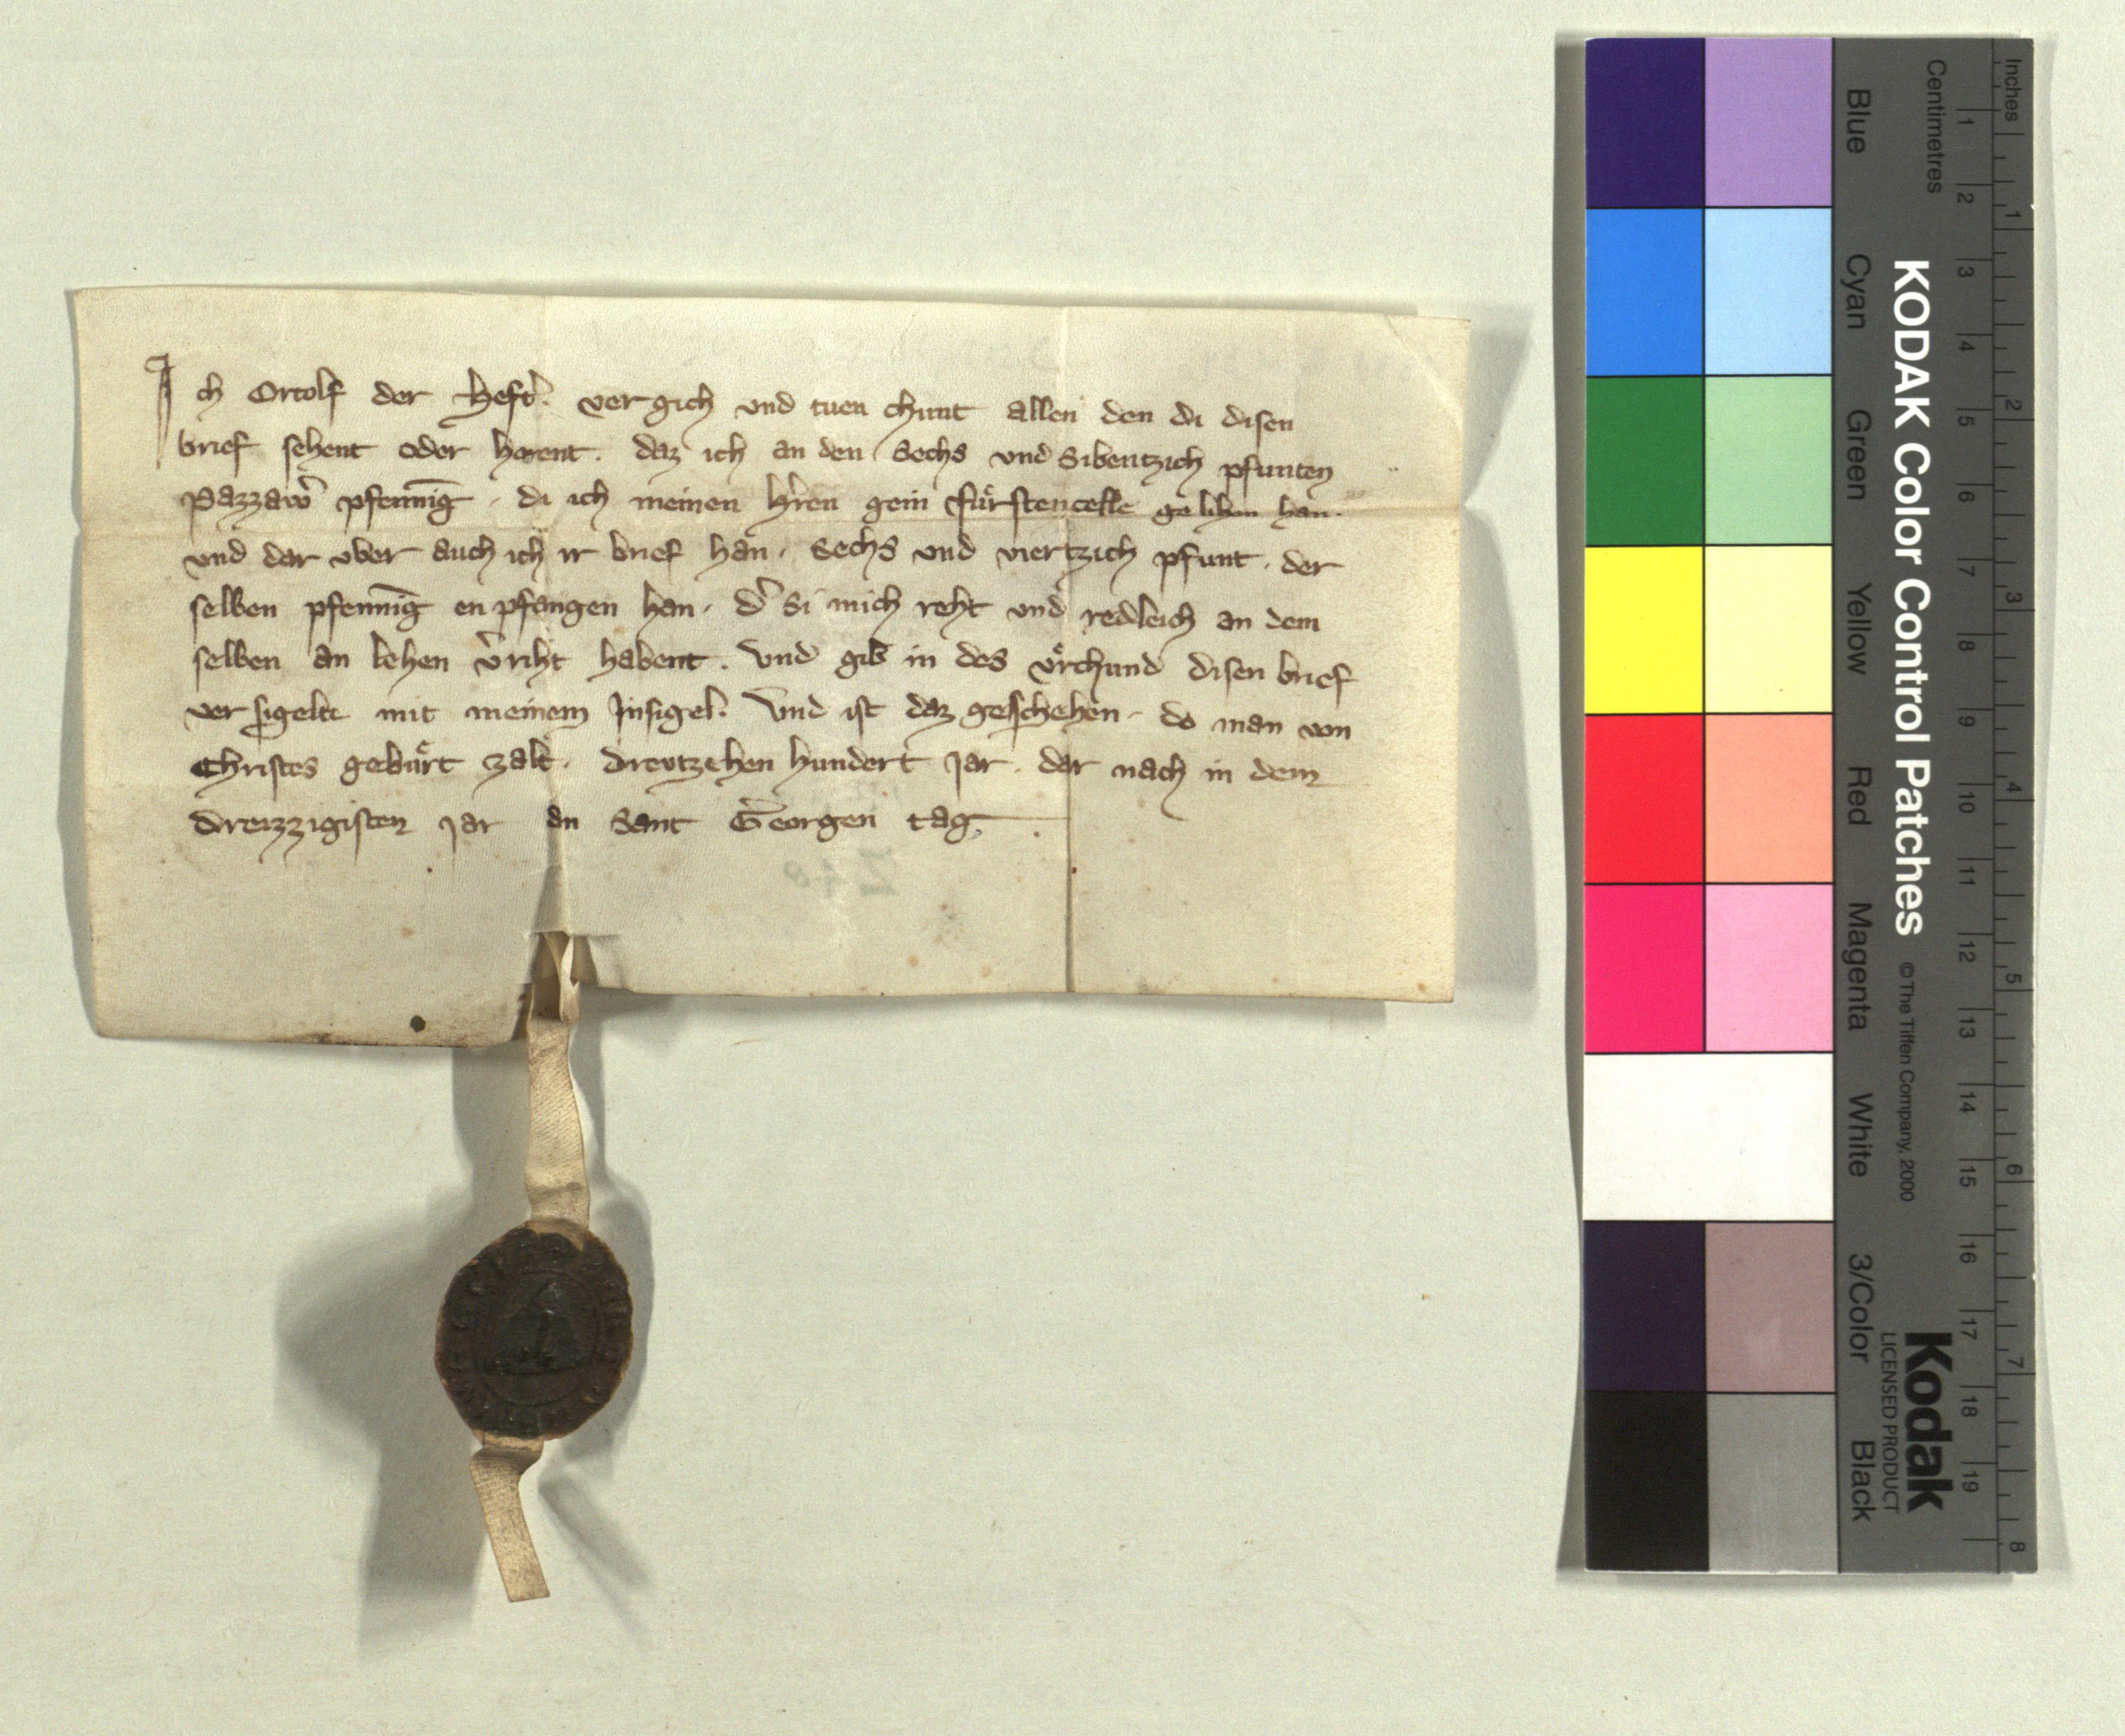 Ich Ortolf der Heftl̕. vergich vnd tuen chunt allen den di disen
brief sehent oder horent. daz ich an den Sechs vnd Sibentzich pfunten
Pazzaw̕ pfenni̅g. di ich meinen h̕ren gein Fuͤrstencelle gelihen han.
vnd dar vber auch ich ir brief han. Sechs vnd viertzich pfunt. der
selben pfenni̅g enpfangen han. d̕ Si mich reht vnd redleich an dem
selben an lehen v̕riht habent. Vnd gib in des vͤrchund disen brief
versigelte mit meinem Jnsigel. Vnd ist daz geschehen. do man von
Christes gebuͤrt zalt. Drevtzehen hundert Jar. dar nach in dem
Dreizzigisten Jar an Sant Georgen tag.
KODAK Color Control Patches
© The Tiffen Company, 2000
Kodak
LICENSED PRODUCT
Inches
1 2 3 4 5 6 7 8
Centimetres
1 2 3 4 5 6 7 8 9 10 11 12 13 14 15 16 17 18 19
Blue Cyan Green Yellow Red Magenta White 3/Color Black